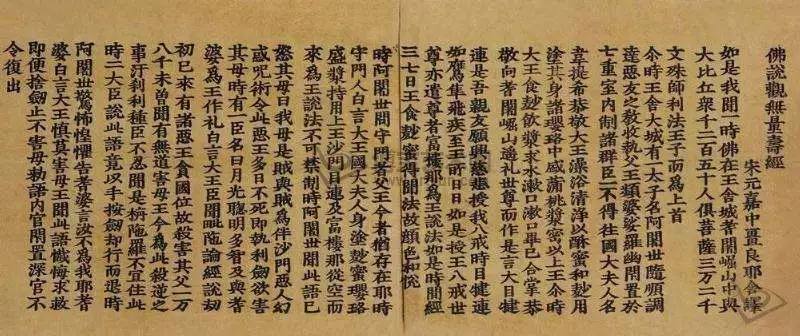 佛說觀無量壽經
宋元嘉中畺良耶舍譯
如是我聞一時佛在王舍城耆闍崛山中與
大比丘衆千二百五十人俱菩薩三万二千
文殊師利法王子而為上首
尒時王舍大城有一太子名阿闍世隨順調
達惡友之教收執父王頻婆娑羅幽閇置於
七重室内制諸群臣一不得往國大夫人名
韋提希恭敬大王澡浴清淨以酥蜜和麨用
塗其身諸瓔珞中盛蒲桃漿密以上王尒時
大王食麨飲漿求水漱口漱口畢已合掌恭
敬向耆闍崛山遥礼世尊而作是言大目揵
連是吾親友願興慈悲授我八戒時目揵連
如鷹隼飛疾至王所日日如是授王八戒世
尊亦遣尊者富樓那為王說法如是時間經
三七日王食麨蜜得聞法故顏色和悅
時阿闍世問守門者父王今者猶存在耶時
守門人白言大王國大夫人身塗麨蜜瓔珞
盛漿持用上王沙門目連及富樓那從空而
來為王說法不可禁制時阿闍世聞此語已
怒其母曰我母是賊與賊為伴沙門惡人幻
惑呪術令此惡王多日不死即執利劒欲害
其母時有一臣名曰月光聰明多智及與耆
婆為王作礼白言大王臣聞毗陁論經說劫
初已來有諸惡王貪國位故殺害其父一万
八千未曾聞有無道害母王今為此殺逆之
事汙刹利種臣不忍聞是栴陁羅不宜住此
時二大臣說此語竟以手按劒却行而退時
阿闍世驚怖惶懼告耆婆言汝不為我耶耆
婆白言大王慎莫害母王聞此語懺悔求救
即便捨劒止不害母勑語内官閇置深宮不
令復出